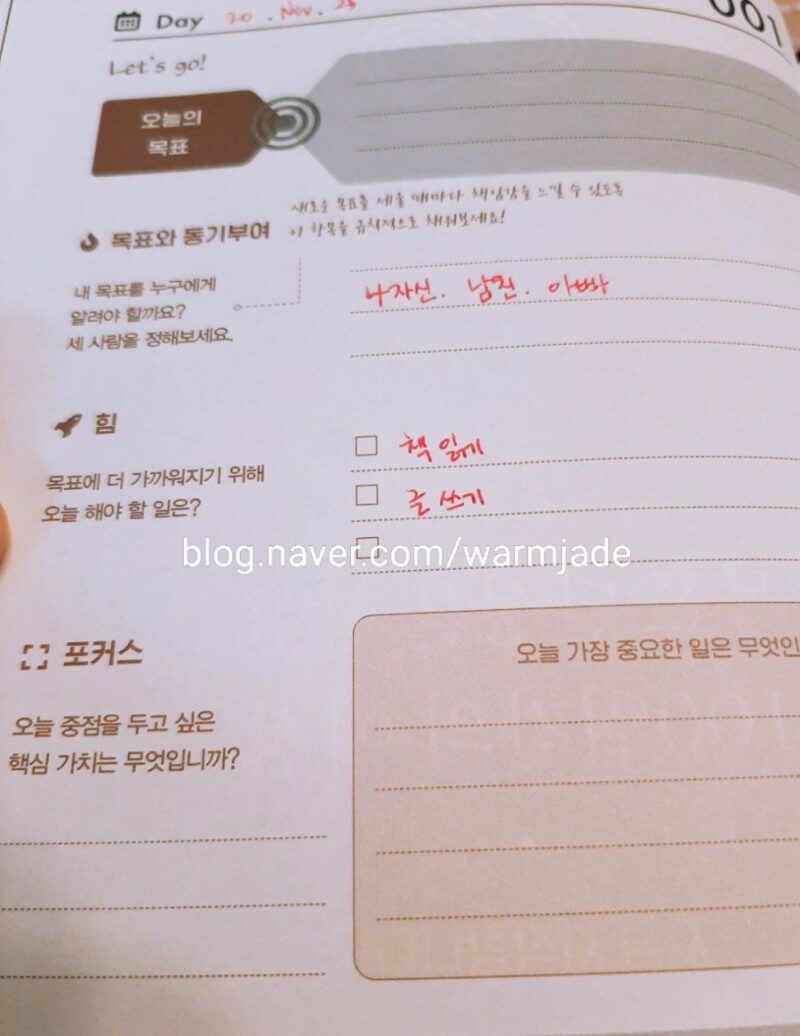 Day 20. Nov. 23
001
Let's go!
오늘의
목표
새로운 목표를 세울 때마다 책임감을 느낄 수 있도록
이 항목을 규칙적으로 채워보세요!
목표와 동기부여
내 목표를 누구에게
알려야 할까요?
세 사람을 정해보세요.
나자신. 남친. 아빠
힘
목표에 더 가까워지기 위해
오늘 해야 할 일은?
책 읽기
글 쓰기
blog.naver.com/warmjade
포커스
오늘 중점을 두고 싶은
핵심 가치는 무엇입니까?
오늘 가장 중요한 일은 무엇인